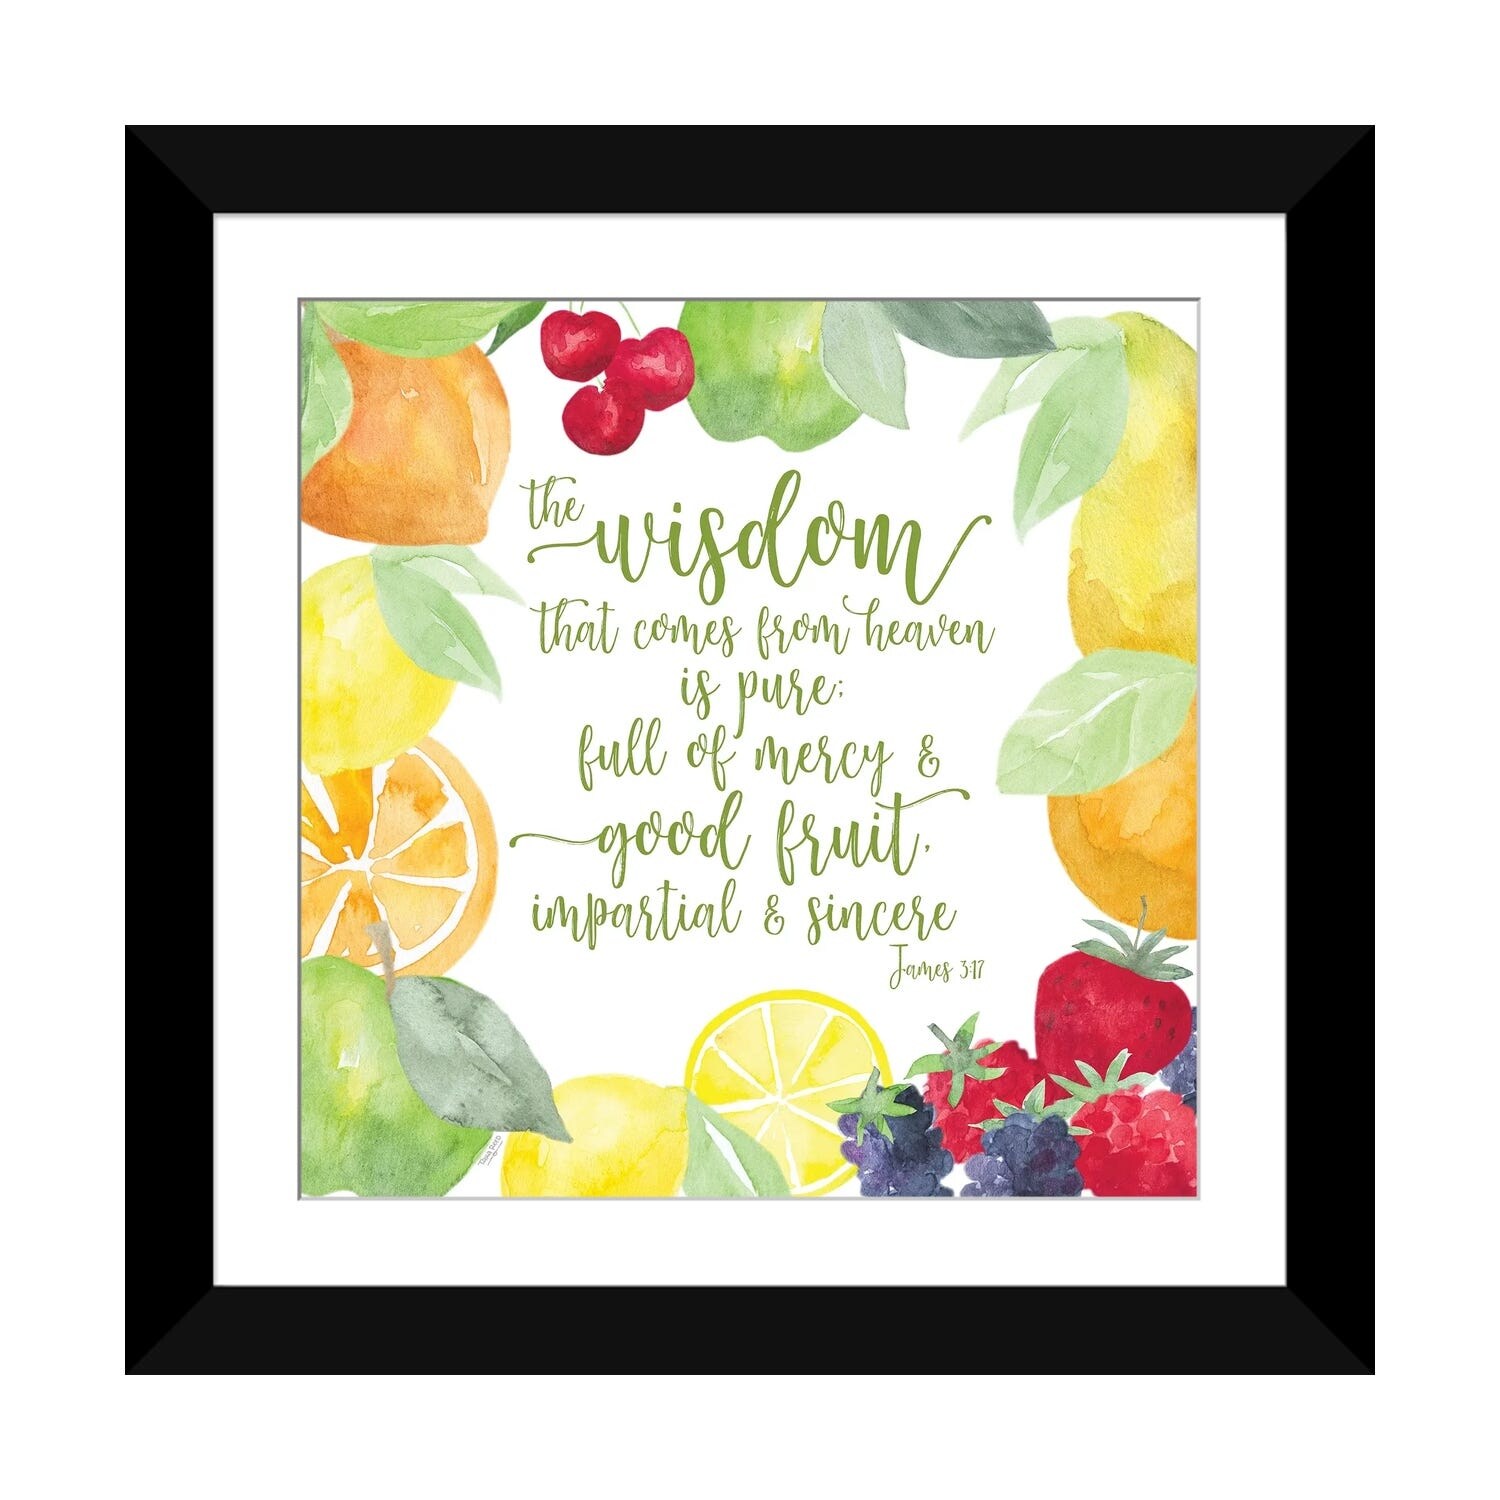 the wisdom
that comes from heaven
is pure;
full of mercy &
good fruit,
impartial & sincere
James 3:17
Tara Reed